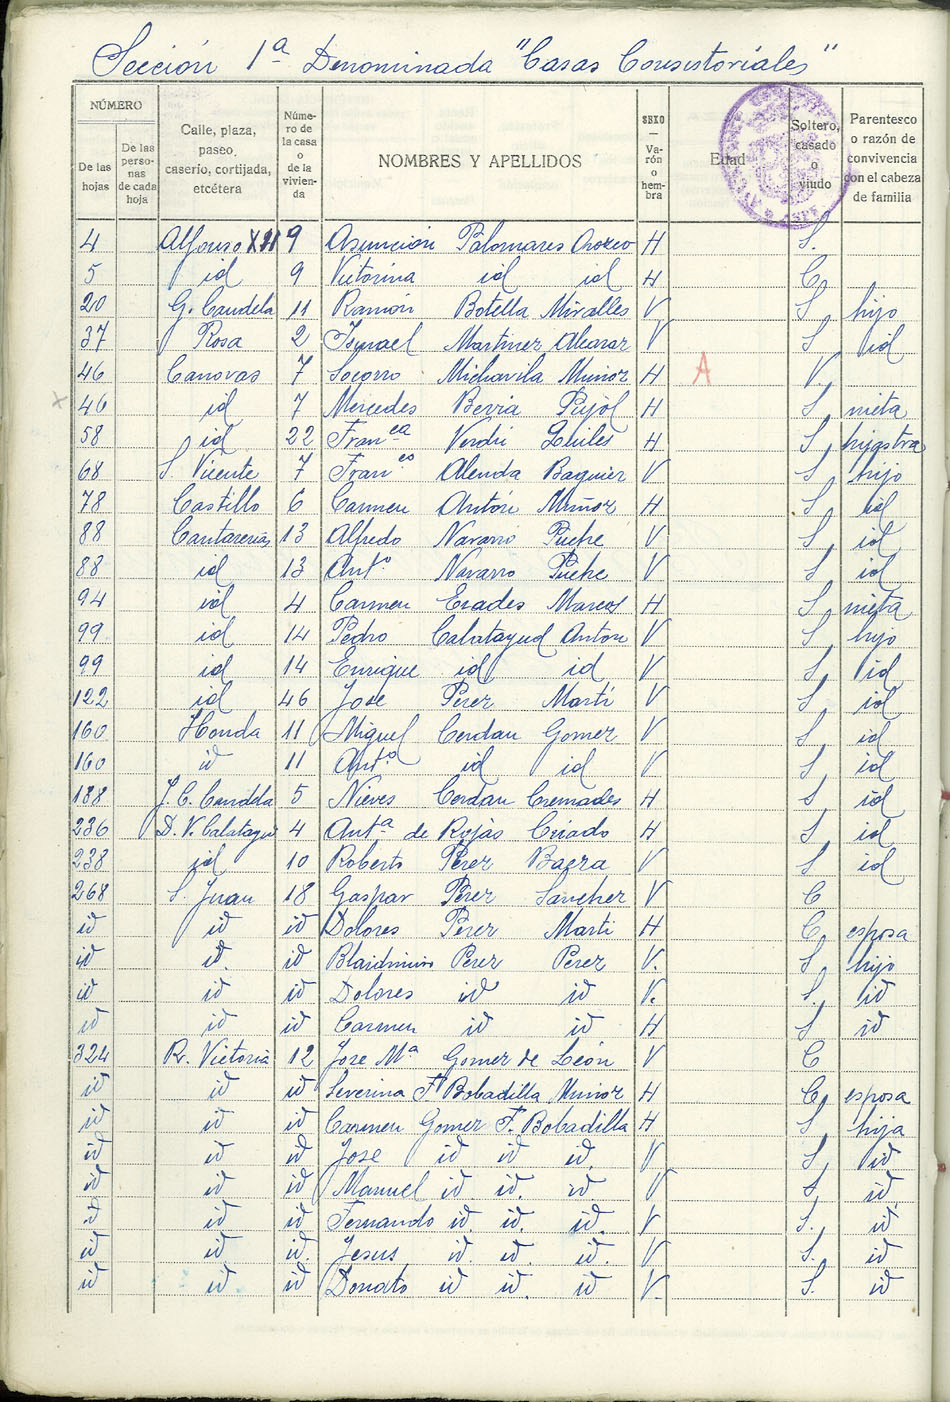 Sección 1ª Denominada "Casas Consistoriales"
NÚMERO
De las hojas
De las personas de cada hoja
Calle, plaza, paseo, caserio, cortijada, etcétera
Número de la casa o de la vivienda
NOMBRES Y APELLIDOS
SEXO — Varón o hembra
Edad
Soltero, casado o viudo
Parentesco o razón de convivencia con el cabeza de familia
4 Alfonso XII 9 Asunción Palomares Orozco H S.
5 id 9 Victorina id id H C
20 G. Candela 11 Ramón Botella Miralles V S hijo
37 Rosa 2 Ismael Martinez Alcaraz V S id
46 Canovas 7 Socorro Michavila Muñoz H A V
x 46 id 7 Mercedes Bevia Pujol H S nieta
58 id 22 Franca Verdú H S hijastra
68 S. Vicente 7 Franco Alenda V S hijo
78 Castillo 6 Carmen Antón Muñoz H S id
88 Cantarerias 13 Alfredo Navarro Puche V S id
88 id 13 Antº Navarro Puche V S id
94 id 4 Carmen Erades Marcos H S nieta
99 id 14 Pedro Calatayud Anton V S hijo
99 id 14 Enrique id id V S id
122 id 46 Jose Perez Martí V S id
160 Honda 11 Miguel Cerdan Gomez V S id
160 id 11 Antº id id V S id
188 J. C. Candela 5 Nieves Cerdan Cremades H S id
236 D. V. Calatayu 4 Antª de Rojas Criado H S id
238 id 10 Roberto Perez V S id
268 S. Juan 18 Gaspar Perez Sanchez V C
id id id Dolores Perez Marti H C esposa
id id. id Perez Perez V. S hijo
id id id Dolores id id V. S. id
id id id Carmen id id H S id
324 R. Victoria 12 Jose Mª Gomez de León V C
id id id Severina F. Bobadilla Muñoz H C esposa
id id id Carmen Gomez F. Bobadilla H S hija
id id id Jose id id id. V S id
id id id Manuel id. id. id. V S id
id id id Fernando id. id. id. V S. id
id id id. Jesus id. id. id. V S. id
id id id Donato id id. id V. S. id